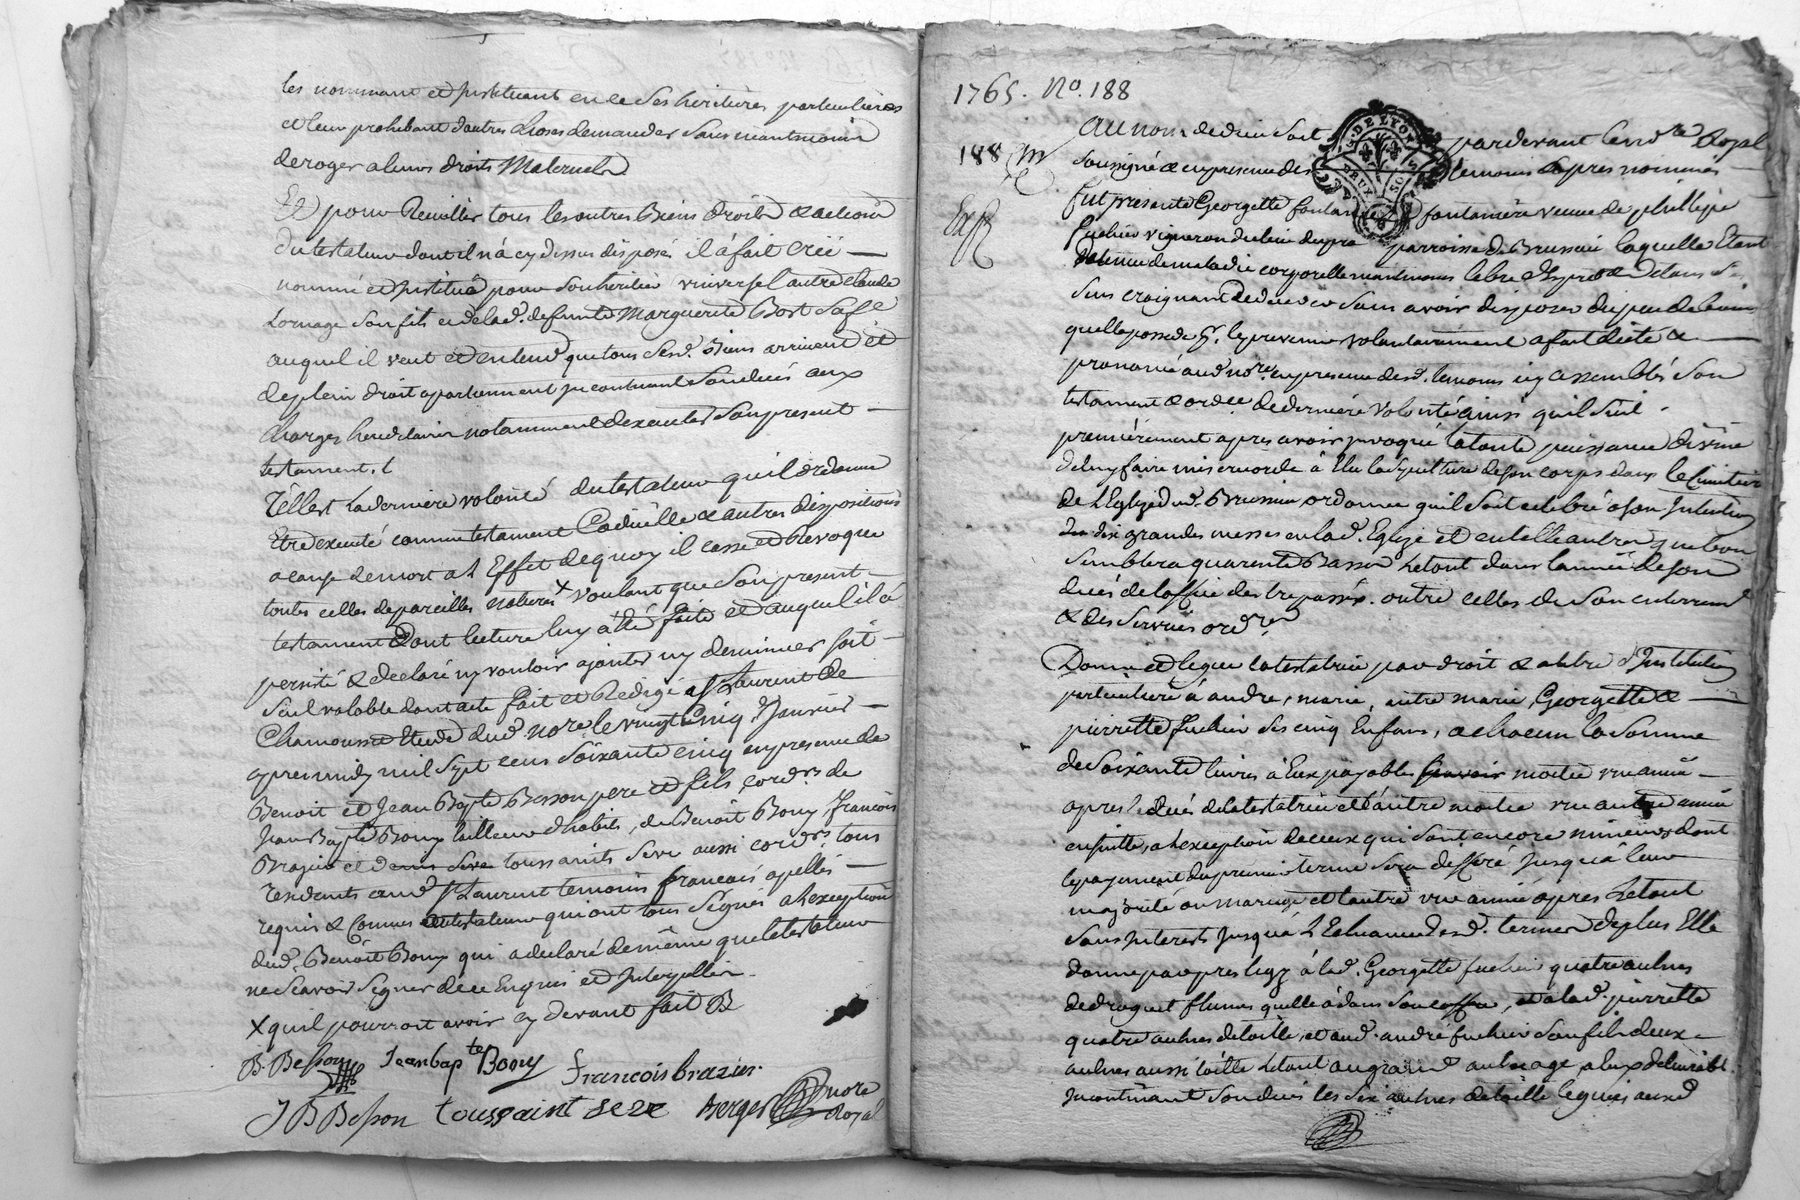 les nommant et instituant en ce ses heritiers particulieres
et leur prohibant d'autres choses demander sans neantmoins
deroger a leurs droits Maternels
Et pour Recueillir tous les autres Biens droits & actions
du testateur dont il n'a cy dessus disposés il a fait créé
nommé et institué pour son héritier universel autre claude
Lornage son fils et de lad. defunte Marguerite Bost Sa fe
auquel il veut et entend que tous sesd. Biens arrivent et
de plein droit apartiennent incontinant Son decés aux
charges hereditaires notamment d'executer Son present
testament. /
Telle est La dernière volonté du testateur qu'il ordonne
Etre executé comme testament Codicille & autres dispositions
a cause de mort a L'Effet de quoy il casse et Revoque
toutes celles de pareilles natures x voulant que Son present
testament Dont lecture luy a été faite et auquel il a
persisté & declaré n'y vouloir ajouter ny deminuer soit
Seul valable dont acte fait et Redigé a St Laurent de
Chamousset Etude dud. nore. le vingt Cinq Janvier
apres midy mil Sept cens Soixante cinq en presence de
Benoit et Jean Bapte Besson pere et fils cordrs. de
Jean Bapte Bony tailleur d'habits, de Benoit Bony françois
Brazier et toussaints Seve aussi cordrs. tous
residents aud. St Laurent temoins francais apellés
requis & Connus au testateur qui ont tous Signés a L'exception
dud. Benoit Bony qui a declaré de même que le testateur
ne Scavoir Signer de ce Enquis et Interpellés.
x qu'il pourroit avoir cy devant fait B
B. Besson Jean bapte Bony francois brazier.
J B Besson toussaint seve verger nore Royal
1765. No. 188
Au nom de dieu soit pardevant le nore Royal
188
soussigné & en presence des temoins cy apres nommés
fut presente Georgette fontaniere veuve de phillipe
fuchier vigneron du lieu parroisse de Brussieu laquelle Etant
detenue de maladie corporelle neantmoins libre d'Esprit & dans ses
sens craignant De deceder sans avoir disposer du peu de biens
qu'elle possede pr. les prevenir volontairement a fait dicté &
prononcé aud nore en presence desd. temoins icy assemblés Son
testament & ordce. de dernière volonté ainsi qu'il suit.
premièrement apres avoir invoqué la toute puissance divine
de luy faire misericorde à Elu la sepulture de son corps dans le Cimitiere
de L'Eglize dud. Brussieu, ordonne qu'il soit celebré a son Intention
dix grandes messes en lad. Eglize et en telle autre que bon
Semblera quarente Basses Letout dans l'année de son
decés de l'office des trepassés. outre celles de Son enterrement
& des Services ordres
Donne et legue la testatrice par droit & a titre d'Institution
particuliere à andre, marie, autre marie, Georgette &
pierrette fuchier Ses cinq Enfans, a chacun la Somme
de Soixante livres à Eux payables moitié une année
apres Le decés de la testatrice et l'autre moitié une autre année
ensuitte, a L'exception de ceux qui sont encore mineurs dont
le payement du premier terme sera differé jusqu'à leur
majorité ou mariage et l'autre une année apres Letout
Sans Interests jusqu'à L'Echeance desd. termes Deplus Elle
donne par preleg à lad. Georgette fuchier quatre aulnes
de droguet qu'elle a dans Son coffre, et a lad. pierrette
quatre aulnes de toille, et aud. andré fuchier Son fils deux
aulnes aussi toille Letout au grand aulnage a Eux delivrable
Incontinant Son decés les six aulnes de toille leguées auxd